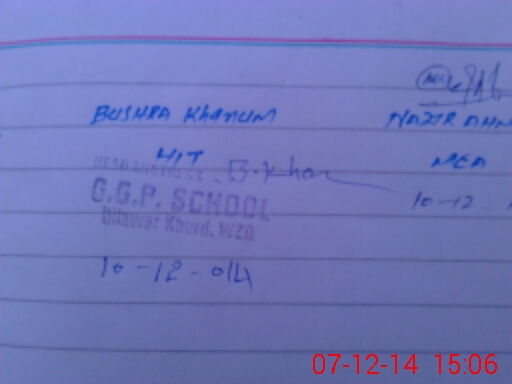 BUSHRA Khanum
NAZIR AHM
H/T
MEA
HEAD MISTRESS
B.Khan
G.G.P. SCHOOL
Dilawar Khurd, WZD
10-12-
10-12-014
07-12-14 15:06